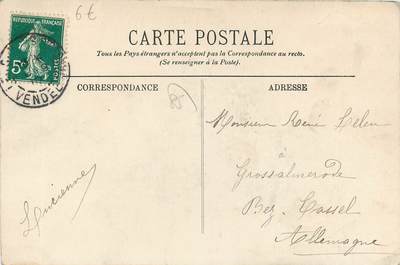 6€
RÉPUBLIQUE FRANÇAISE
5c
POSTES
VENDEL
CARTE POSTALE
Tous les Pays étrangers n'acceptent pas la Correspondance au recto.
(Se renseigner à la Poste).
CORRESPONDANCE
ADRESSE
Monsieur René Leleu
à
Grossalmerode
Bez. Cassel
Allemagne
Lucienne